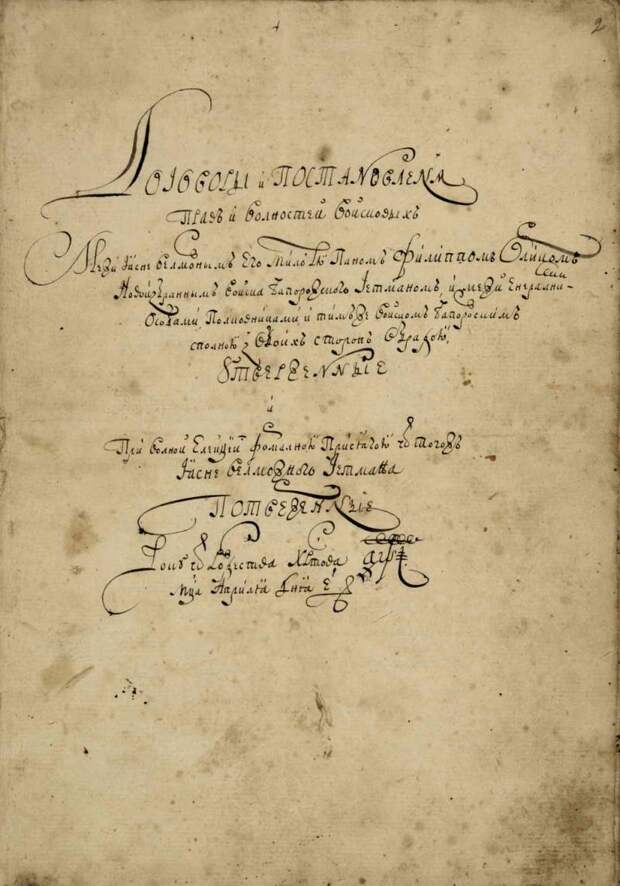 2
Договоры и Постановленя
Правъ и волностей войсковыхъ
Межи Ясне велможнымъ Его Милостю Паномъ Филиппомъ Орликомъ
Новоизбраннымъ войска Запорожского Гетманомъ, и межи Енералними
Особами Полковниками, и тимъ же войскомъ Запорозскимъ
сполною з обойхъ сторонъ обрадою,
Утверженные
и
При волной Елекцыи формалною Присягою ѿ тогожъ
Ясне велможного Гетмана
Потверженные
Року ѿ Рожества Хр͠това аѱі
мц͠а Априля дня е͠